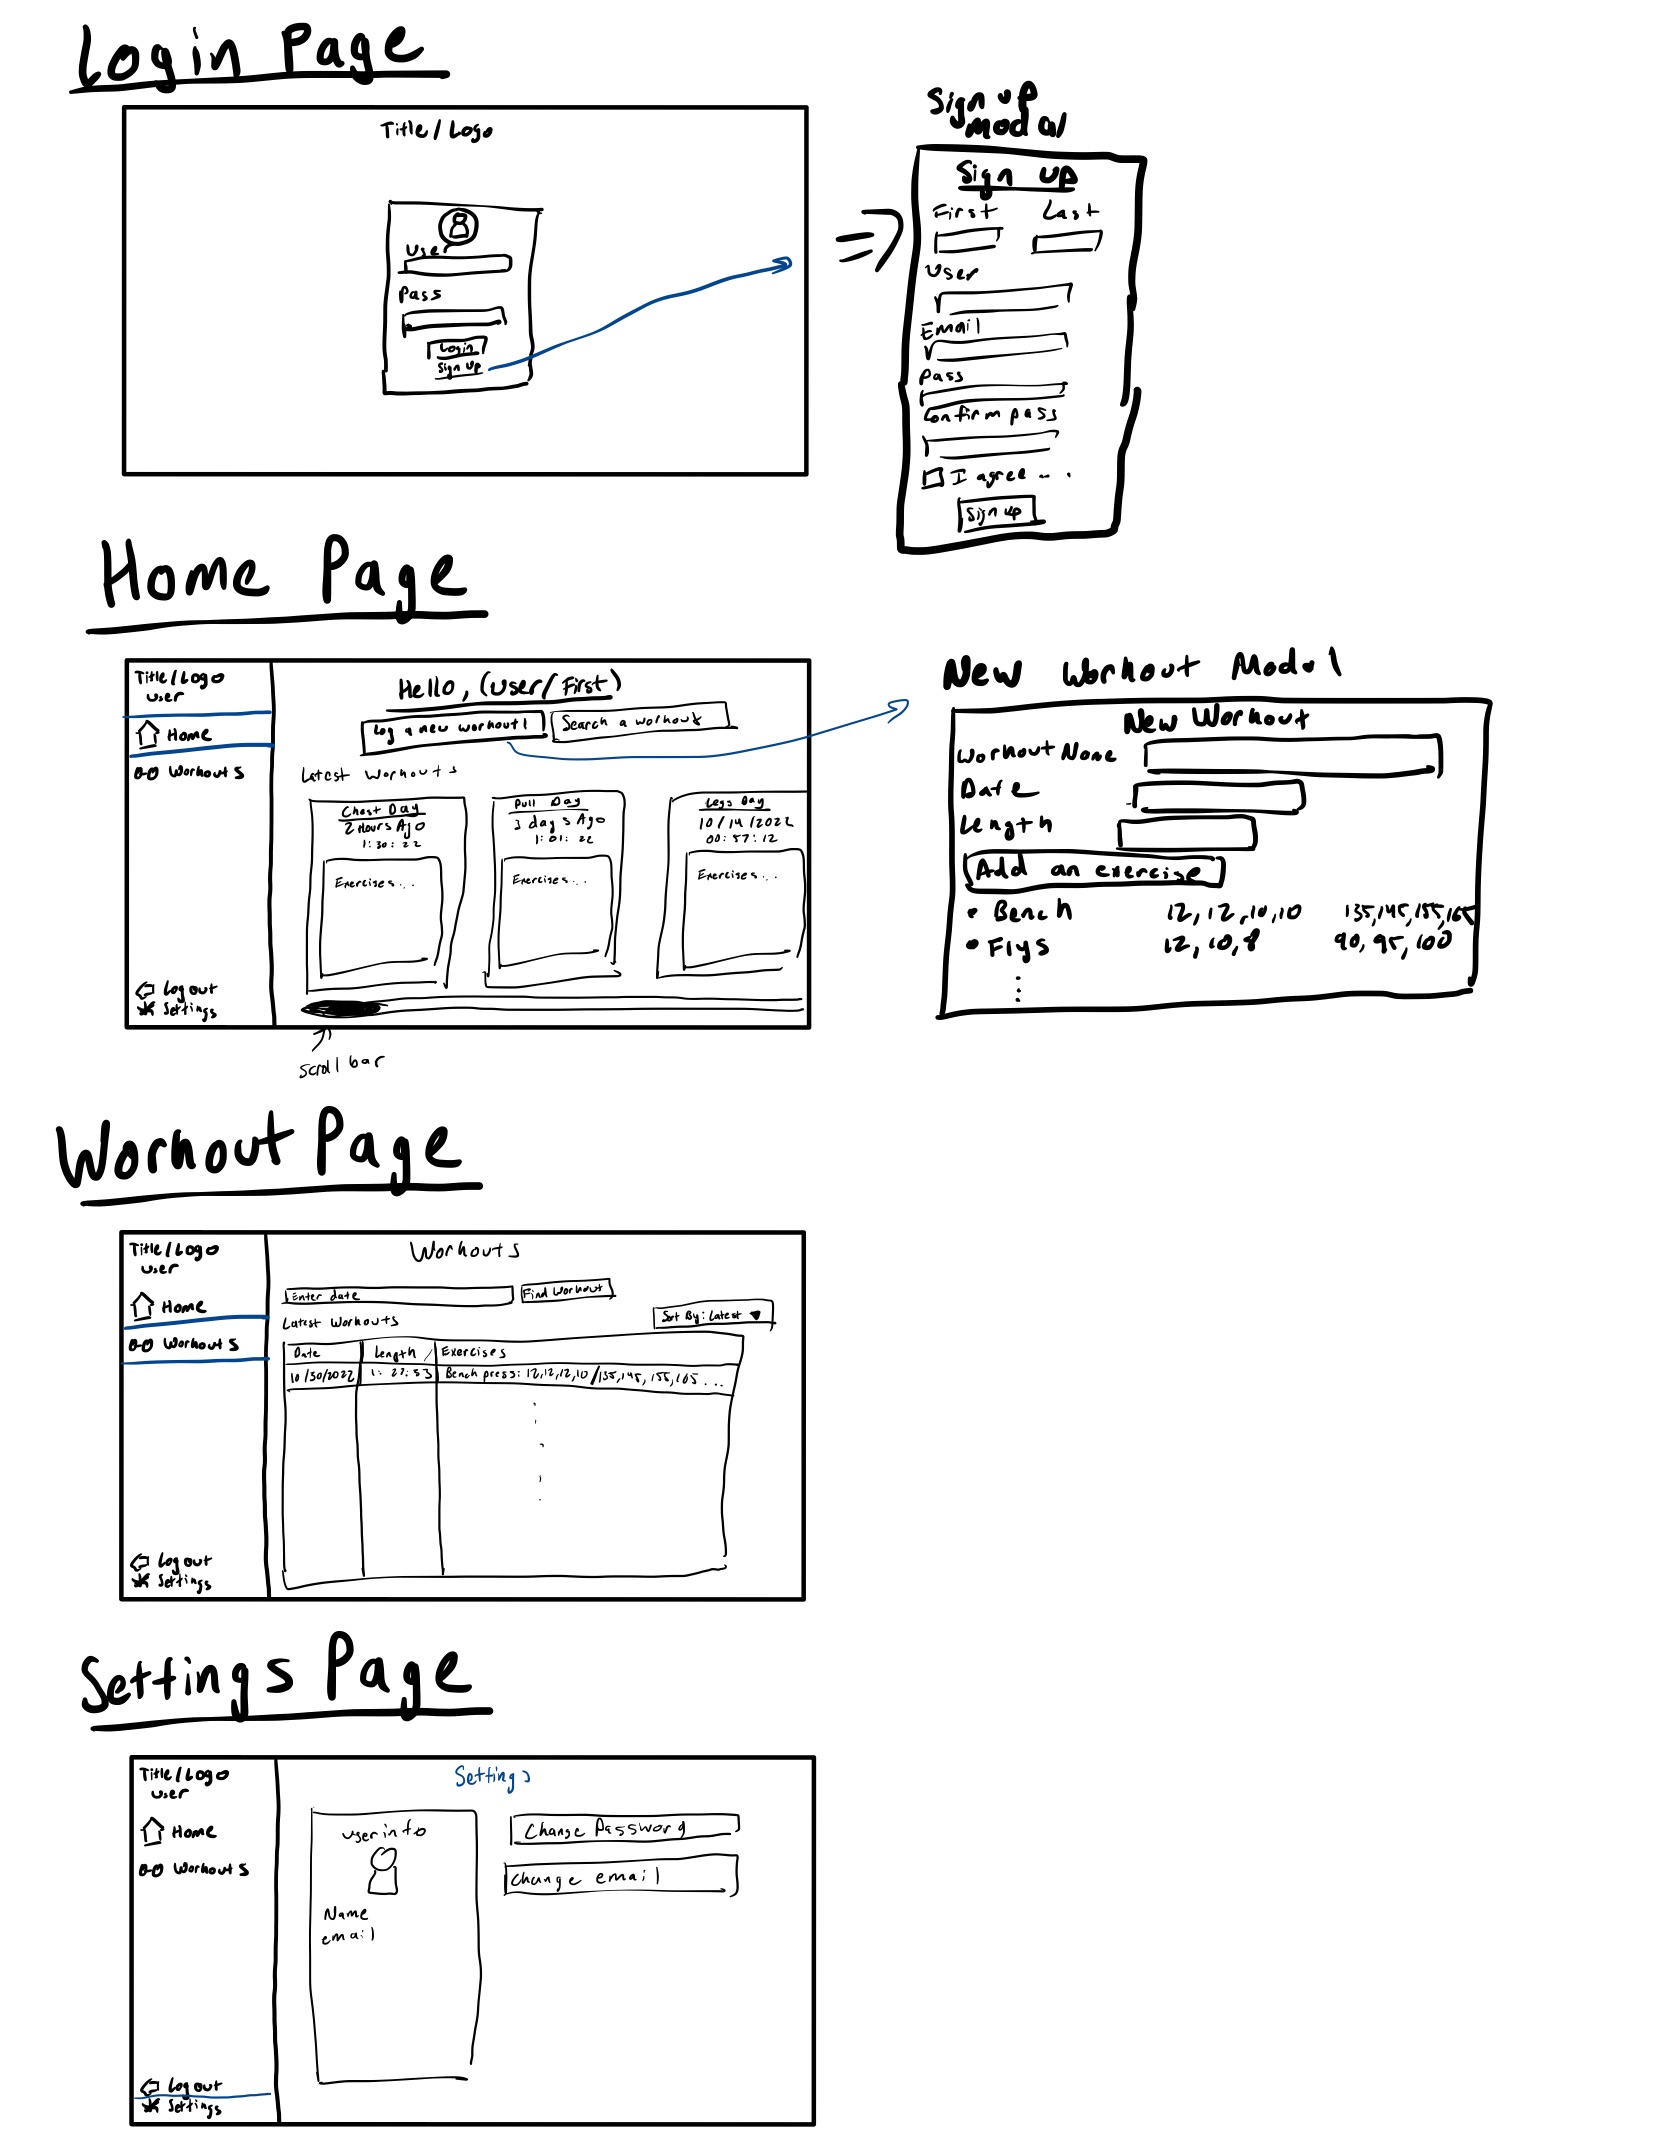 Login Page
Title/Logo
User
Pass
Login
Sign up
Sign up
modal
Sign up
First Last
User
Email
Pass
Confirm pass
I agree ...
Sign up
Home Page
Title/Logo
user
Home
Workouts
Logout
Settings
Hello, (user/First)
Log a new workout!
Search a workout
Latest Workouts
Chest Day
2 Hours Ago
1:30:22
Exercises...
Pull Day
3 days Ago
1:01:22
Exercises...
Legs Day
10/14/2022
00:57:12
Exercises...
scroll bar
New Workout Modal
New Workout
Workout Name
Date
Length
Add an exercise
• Bench 12,12,10,10 135,145,155,165
• Flys 12,10,8 90,95,100
Workout Page
Title/Logo
user
Home
Workouts
Logout
Settings
Workouts
Enter date
Find Workout
Latest Workouts
Sort By: Latest
Date Length Exercises
10/30/2022 1:27:53 Bench press: 12,12,12,10/135,145,155,165...
Settings Page
Title/Logo
user
Home
Workouts
Logout
Settings
Settings
user info
Name
email
Change Password
Change email